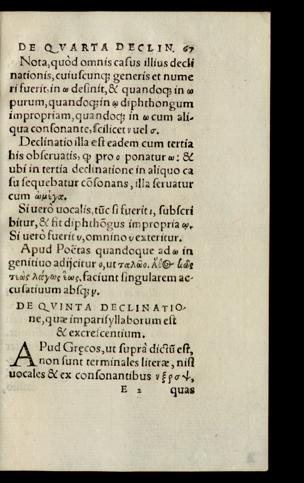 DE QVARTA DECLIN. 67
Nota, quòd omnis casus illius decli
nationis, cuiuscunq; generis et nume
ri fuerit, in ω desinit, & quandoq; in ω
purum, quandoq; in ῳ diphthongum
impropriam, quandoq; in ω cum ali-
qua consonante, scilicet ν uel σ.
Declinatio illa est eadem cum tertia
his obseruatis, ꝙ pro ο ponatur ω: &
ubi in tertia declinatione in aliquo ca
su sequebatur cõsonans, illa seruatur
cum ὠμέγα.
Si uerò uocalis, tũc si fuerit ι, subscri
bitur, & fit diphthõgus impropria ῳ.
Si uerò fuerit υ, omnino υ exteritur.
Apud Poëtas quandoque ad ω in
genitiuo adijcitur ο, ut
λάγως faciunt singularem ac-
cusatiuum absq; ν.
DE QVINTA DECLINATIO-
ne, quæ imparisyllaborum est
& excrescentium.
APud Gręcos, ut suprà dictũ est,
non sunt terminales literæ, nisi
uocales & ex consonantibus ν ξ ρ σ ψ,
E 2 quas